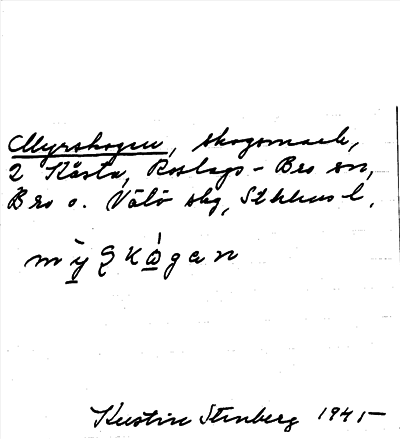 Myrskogen, skogsmark,
2 Kårsta, Roslags-Bro sn,
Bro o. Vätö skg, Sthlms l.
mỳʂkógan
Kerstin Stenberg 1941